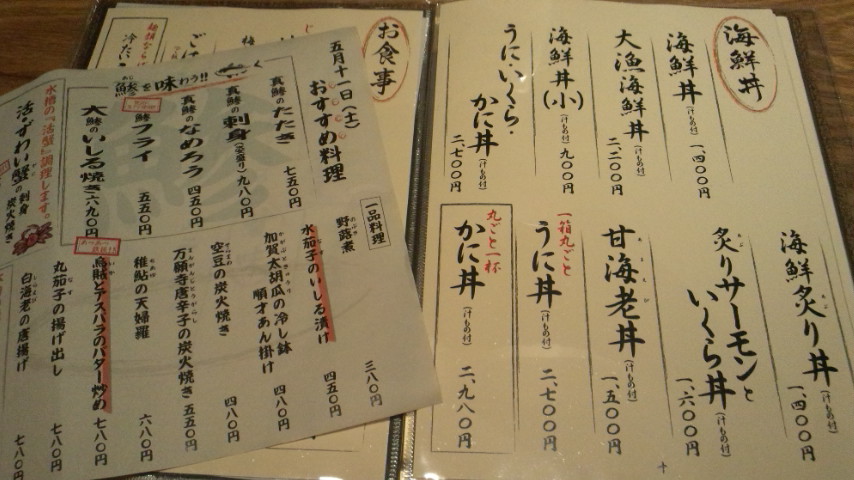 海鮮丼
海鮮丼(汁もの付) 一、四〇〇円
大漁海鮮丼(汁もの付) 二、二〇〇円
海鮮丼(小)(汁もの付) 九〇〇円
うに・いくら・かに丼(汁もの付) 二、七〇〇円
海鮮炙り丼(汁もの付) 一、四〇〇円
炙りサーモンと
いくら丼(汁もの付) 一、六〇〇円
甘海老丼(汁もの付) 一、五〇〇円
一箱丸ごと
うに丼(汁もの付) 二、七〇〇円
丸ごと一杯
かに丼(汁もの付) 二、九八〇円
お食事
五月十一日(土)
おすすめ料理
鯵を味わう!!
真鯵のたたき 七五〇円
真鯵の刺身(姿盛り) 九八〇円
真鯵のなめろう 四五〇円
鯵フライ 五五〇円
大鯵のいしる焼き 六九〇円
水槽の「活蟹」調理します。
活ずわい蟹の刺身
炭火焼き
一品料理
野蕗煮 三八〇円
水茄子のいしる漬け 四五〇円
加賀太胡瓜の冷し鉢
順才あん掛け 四八〇円
空豆の炭火焼き 四八〇円
万願寺唐辛子の炭火焼き 五五〇円
稚鮎の天婦羅 六八〇円
烏賊とアスパラのバター炒め 七八〇円
丸茄子の揚げ出し 七八〇円
白海老の唐揚げ 七八〇円